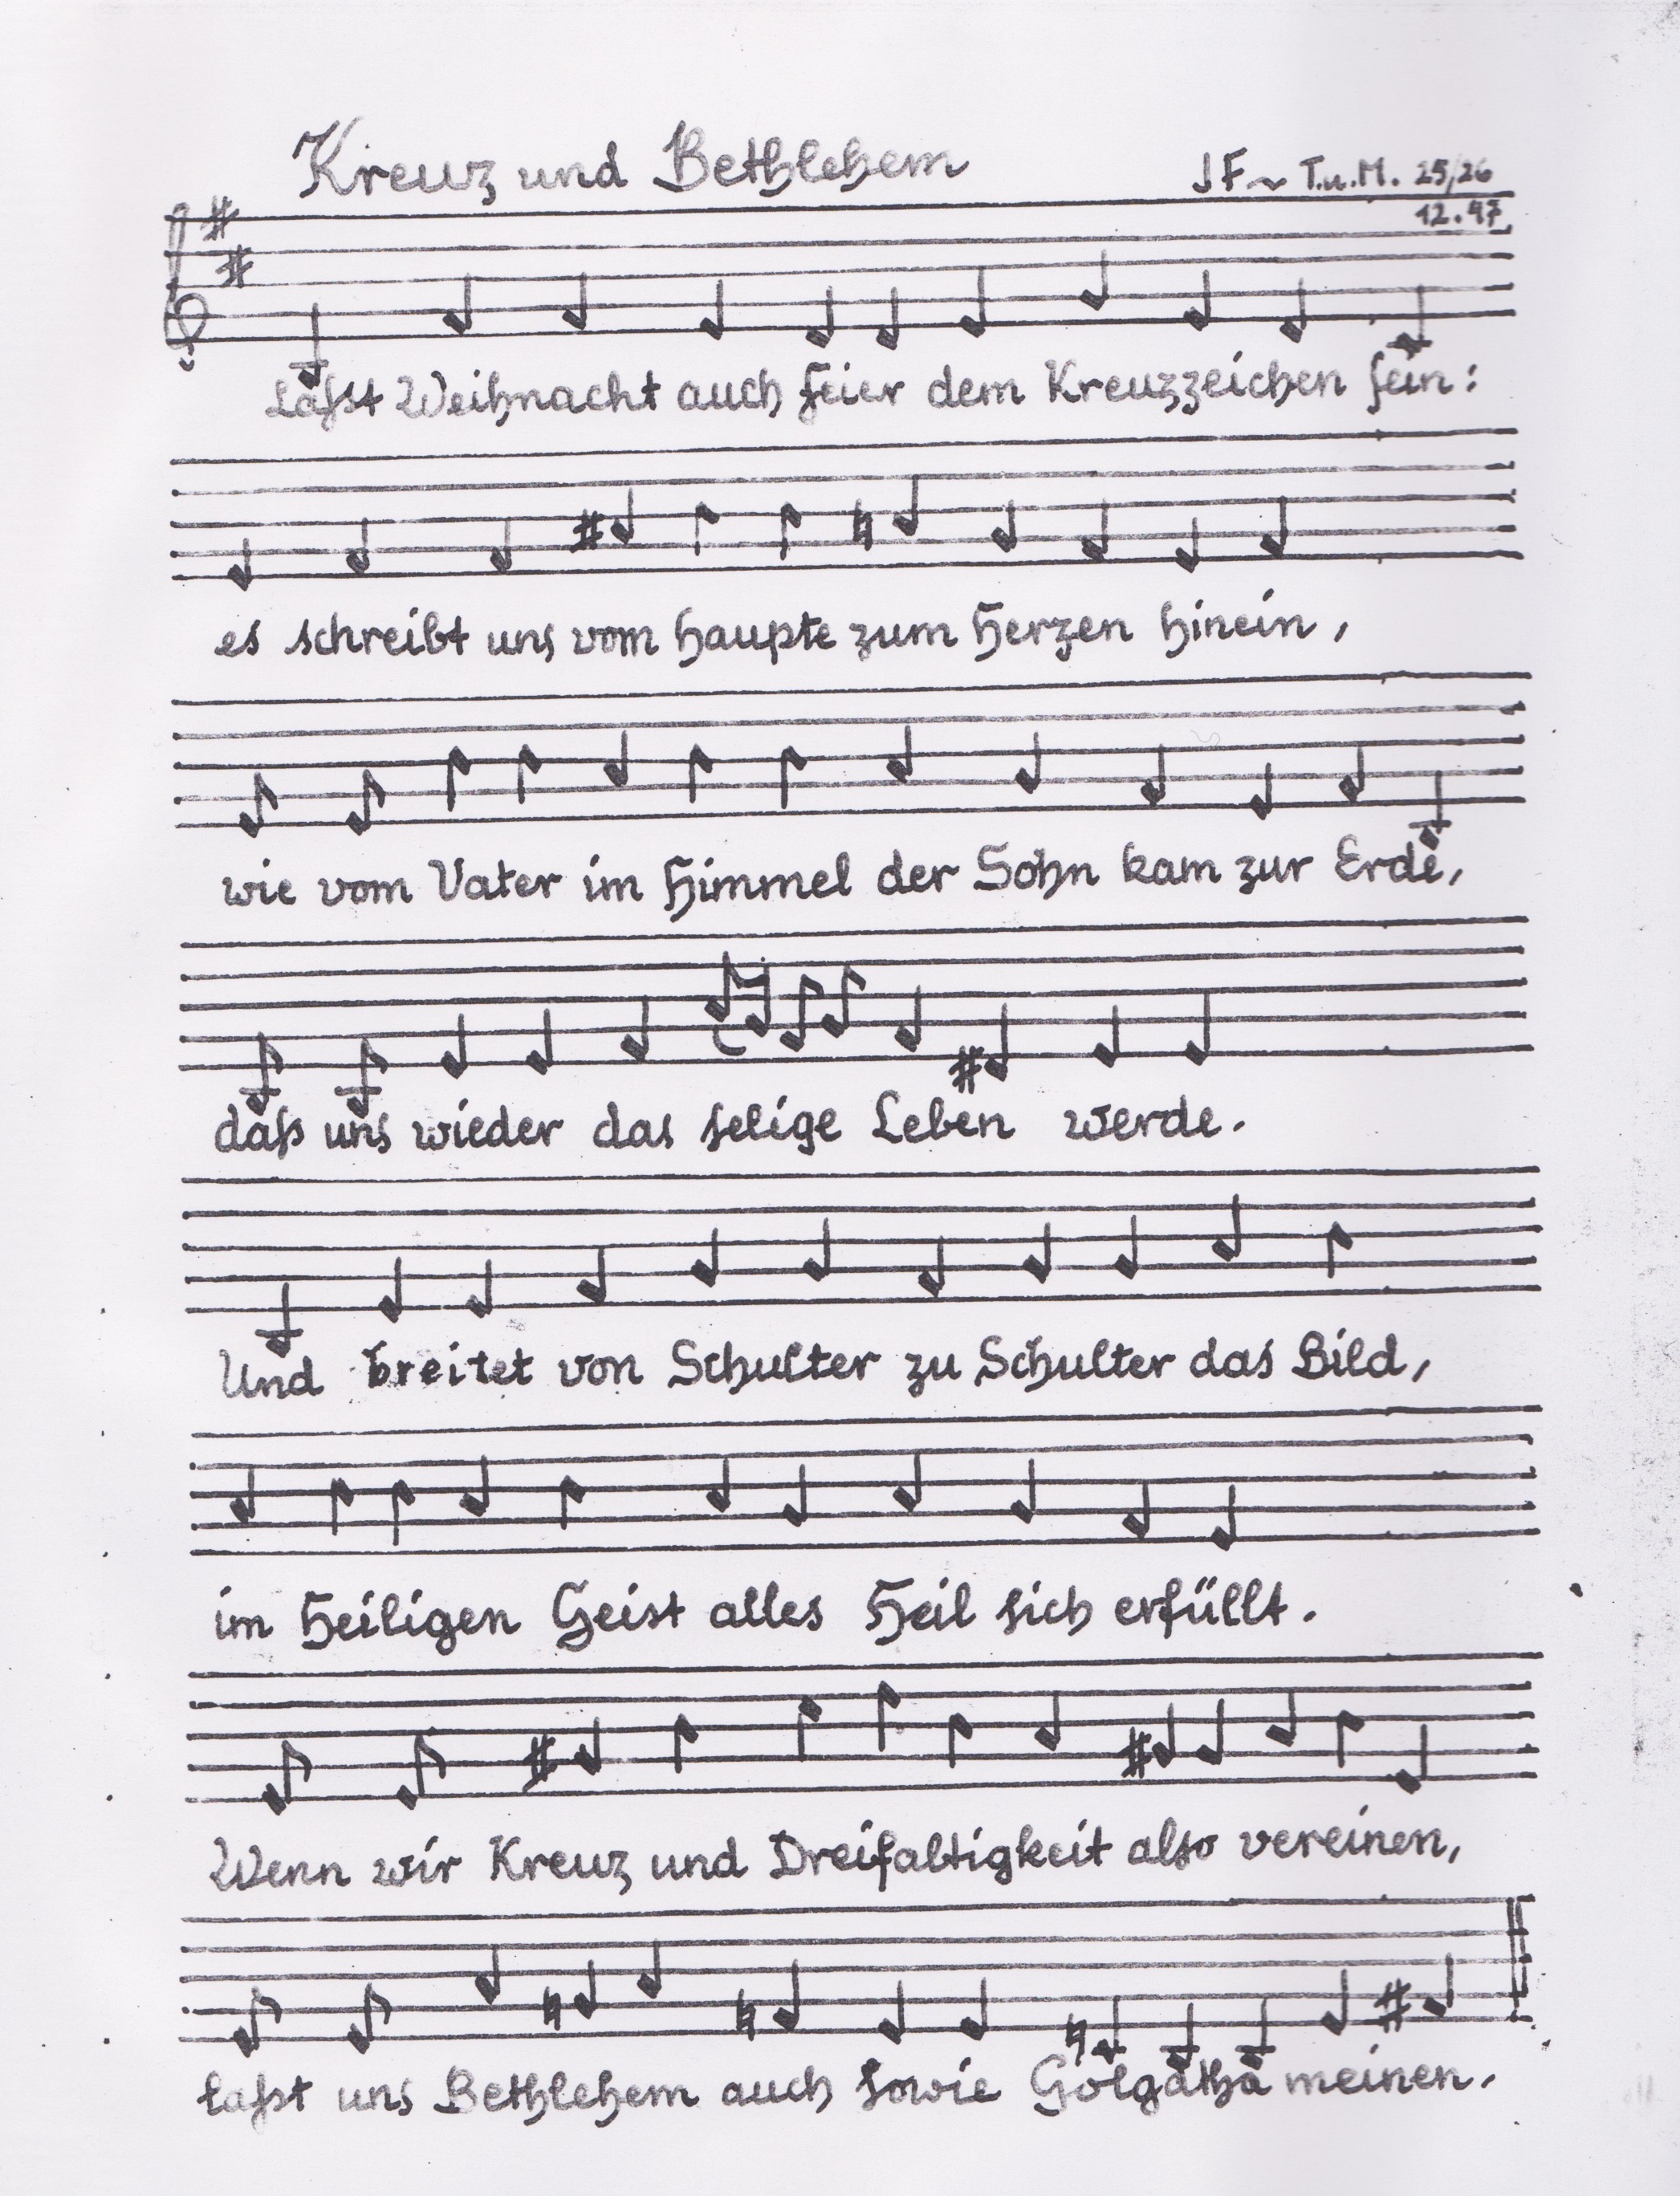 Kreuz und Bethlehem
JF~ T.u.M. 25/26
12.97
Laßt Weihnacht auch Feier dem Kreuzzeichen sein:
es schreibt uns vom Haupte zum Herzen hinein,
wie vom Vater im Himmel der Sohn kam zur Erde,
daß uns wieder das selige Leben werde.
Und breitet von Schulter zu Schulter das Bild,
im Heiligen Geist alles Heil sich erfüllt.
Wenn wir Kreuz und Dreifaltigkeit also vereinen,
laßt uns Bethlehem auch sowie Golgatha meinen.